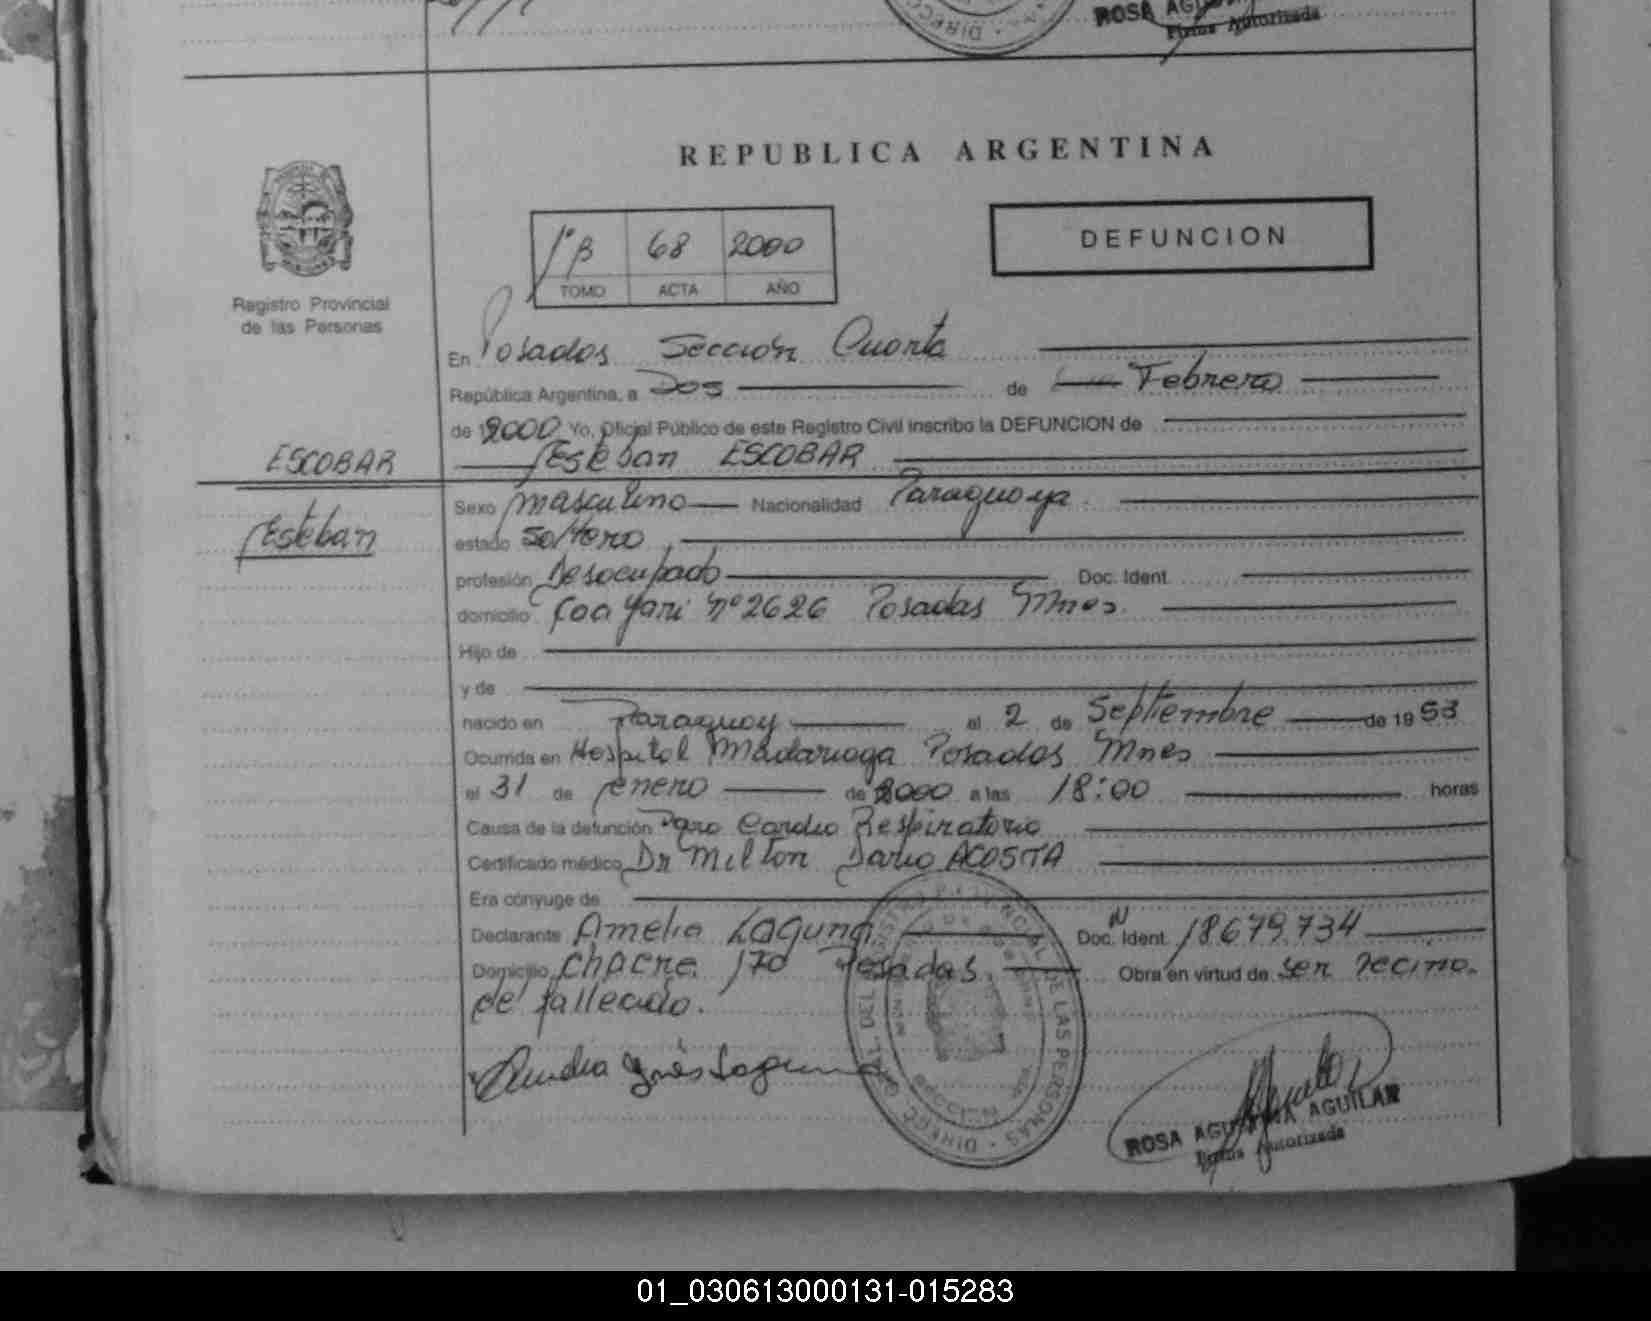 ROSA AGU
Firma Autorizada
REPUBLICA ARGENTINA
DEFUNCION
1º B 68 2000
TOMO ACTA AÑO
Registro Provincial
de las Personas
En Posadas Sección Cuarta
República Argentina, a Dos de Febrero
de 2000 Yo, Oficial Público de este Registro Civil inscribo la DEFUNCION de
ESCOBAR
Esteban ESCOBAR
Esteban
Sexo masculino Nacionalidad Paraguaya
estado Soltero
profesión Desocupado Doc. Ident.
domicilio Caa Yari nº 2626 Posadas Mnes.
Hijo de
y de
nacido en Paraguay el 2 de Septiembre de 1953
Ocurrida en Hospital Madariaga Posadas Mnes
el 31 de enero de 2000 a las 18:00 horas
Causa de la defunción Paro Cardio Respiratorio
Certificado médico Dr Milton Dario ACOSTA
Era cónyuge de
Declarante Amelia Laguna Doc. Ident. 18679.734
Domicilio Chacra 170 Posadas. Obra en virtud de ser vecino.
de fallecido.
ROSA AGUSTINA AGUILAR
Firma Autorizada
01_030613000131-015283